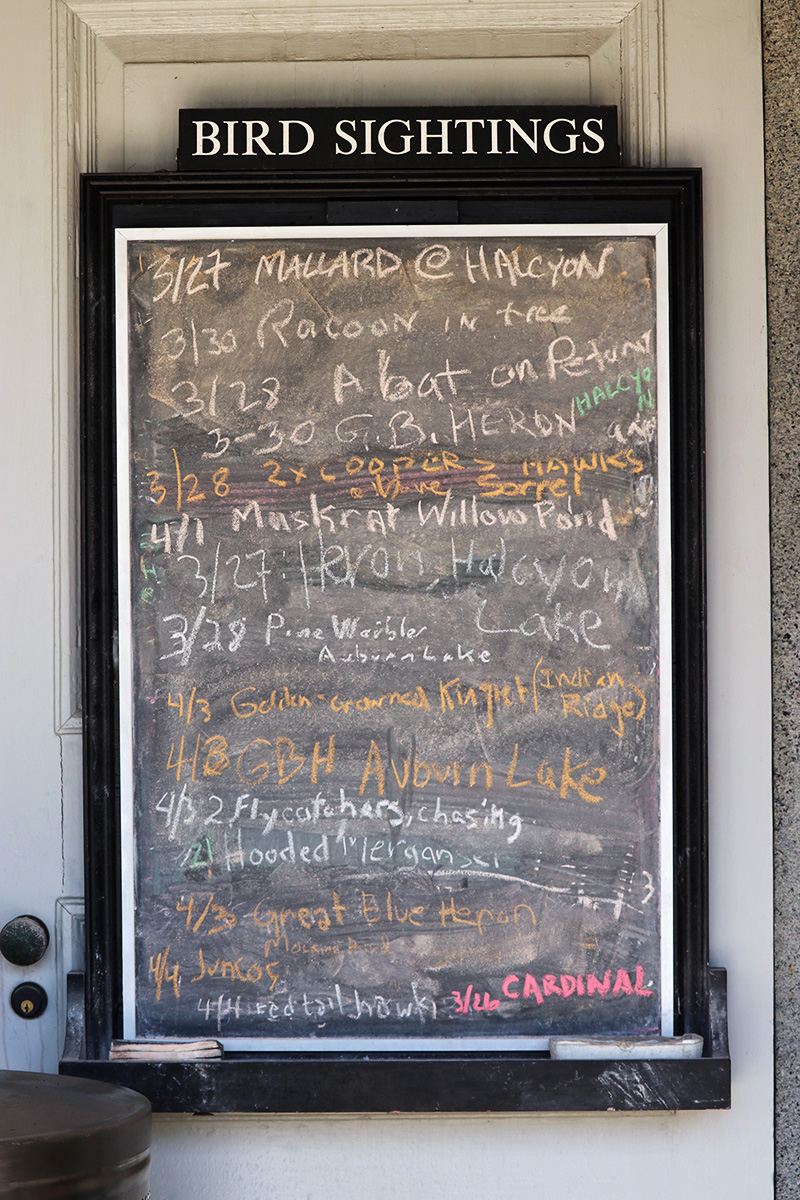 BIRD SIGHTINGS
3/27 MALLARD @ HALCYON
3/30 Racoon in tree
3/28 A bat on Petunia
HALCYON
3-30 G.B. HERON
3/28 2x COOPERS HAWKS
above Sorrel
4/1 Muskrat Willow Pond
3/27: Heron, Halcyon
Lake
3/28 Pine Warbler
Auburn Lake
4/3 Golden-crowned Kinglet (Indian
Ridge)
4/3 GBH Auburn Lake
4/3 2 Flycatchers, chasing
Hooded Merganser
4/3 Great Blue Heron
Mocking Bird
4/4 Juncos
4/4 red tail hawk
3/26 CARDINAL